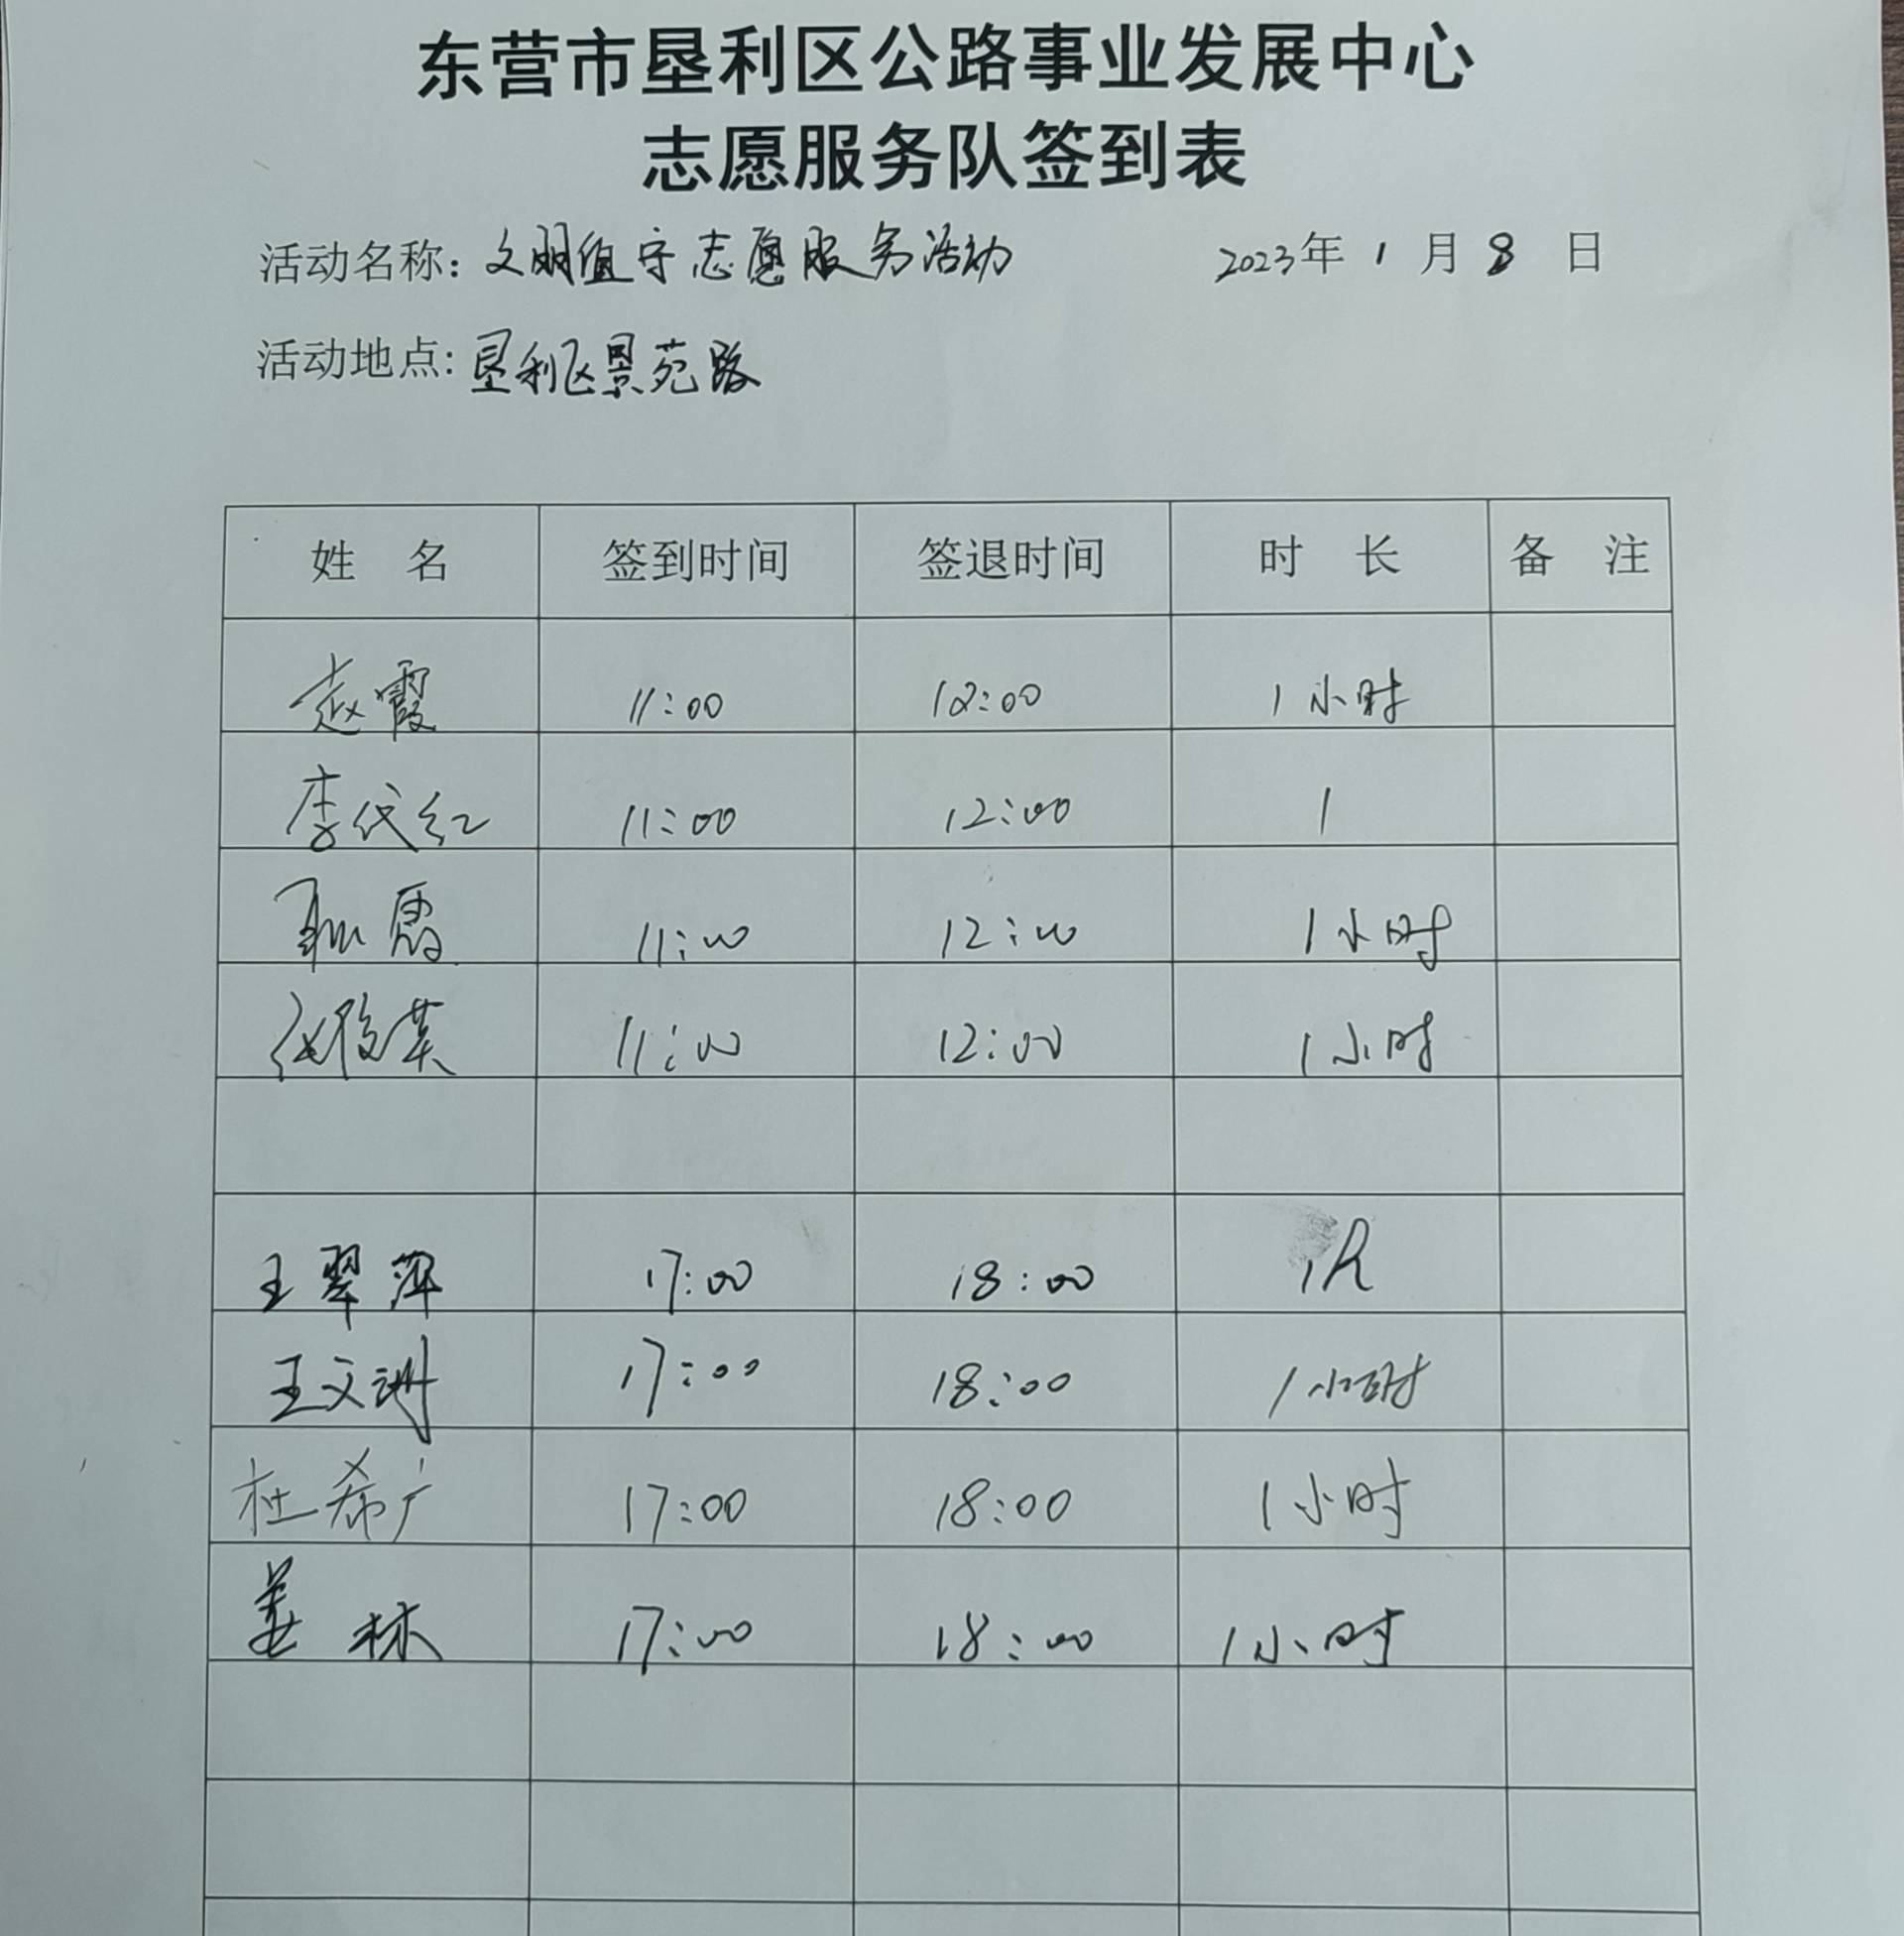 东营市垦利区公路事业发展中心
志愿服务队签到表
活动名称：文明值守志愿服务活动 2023年 1 月 8 日
活动地点：垦利区景苑路
姓 名 签到时间 签退时间 时 长 备 注
赵霞 11:00 12:00 1小时
李代红 11:00 12:00 1
耿霞 11:00 12:00 1小时
11:00 12:00 1小时
王翠萍 17:00 18:00 1h
王文洲 17:00 18:00 1小时
杜希广 17:00 18:00 1小时
姜林 17:00 18:00 1小时